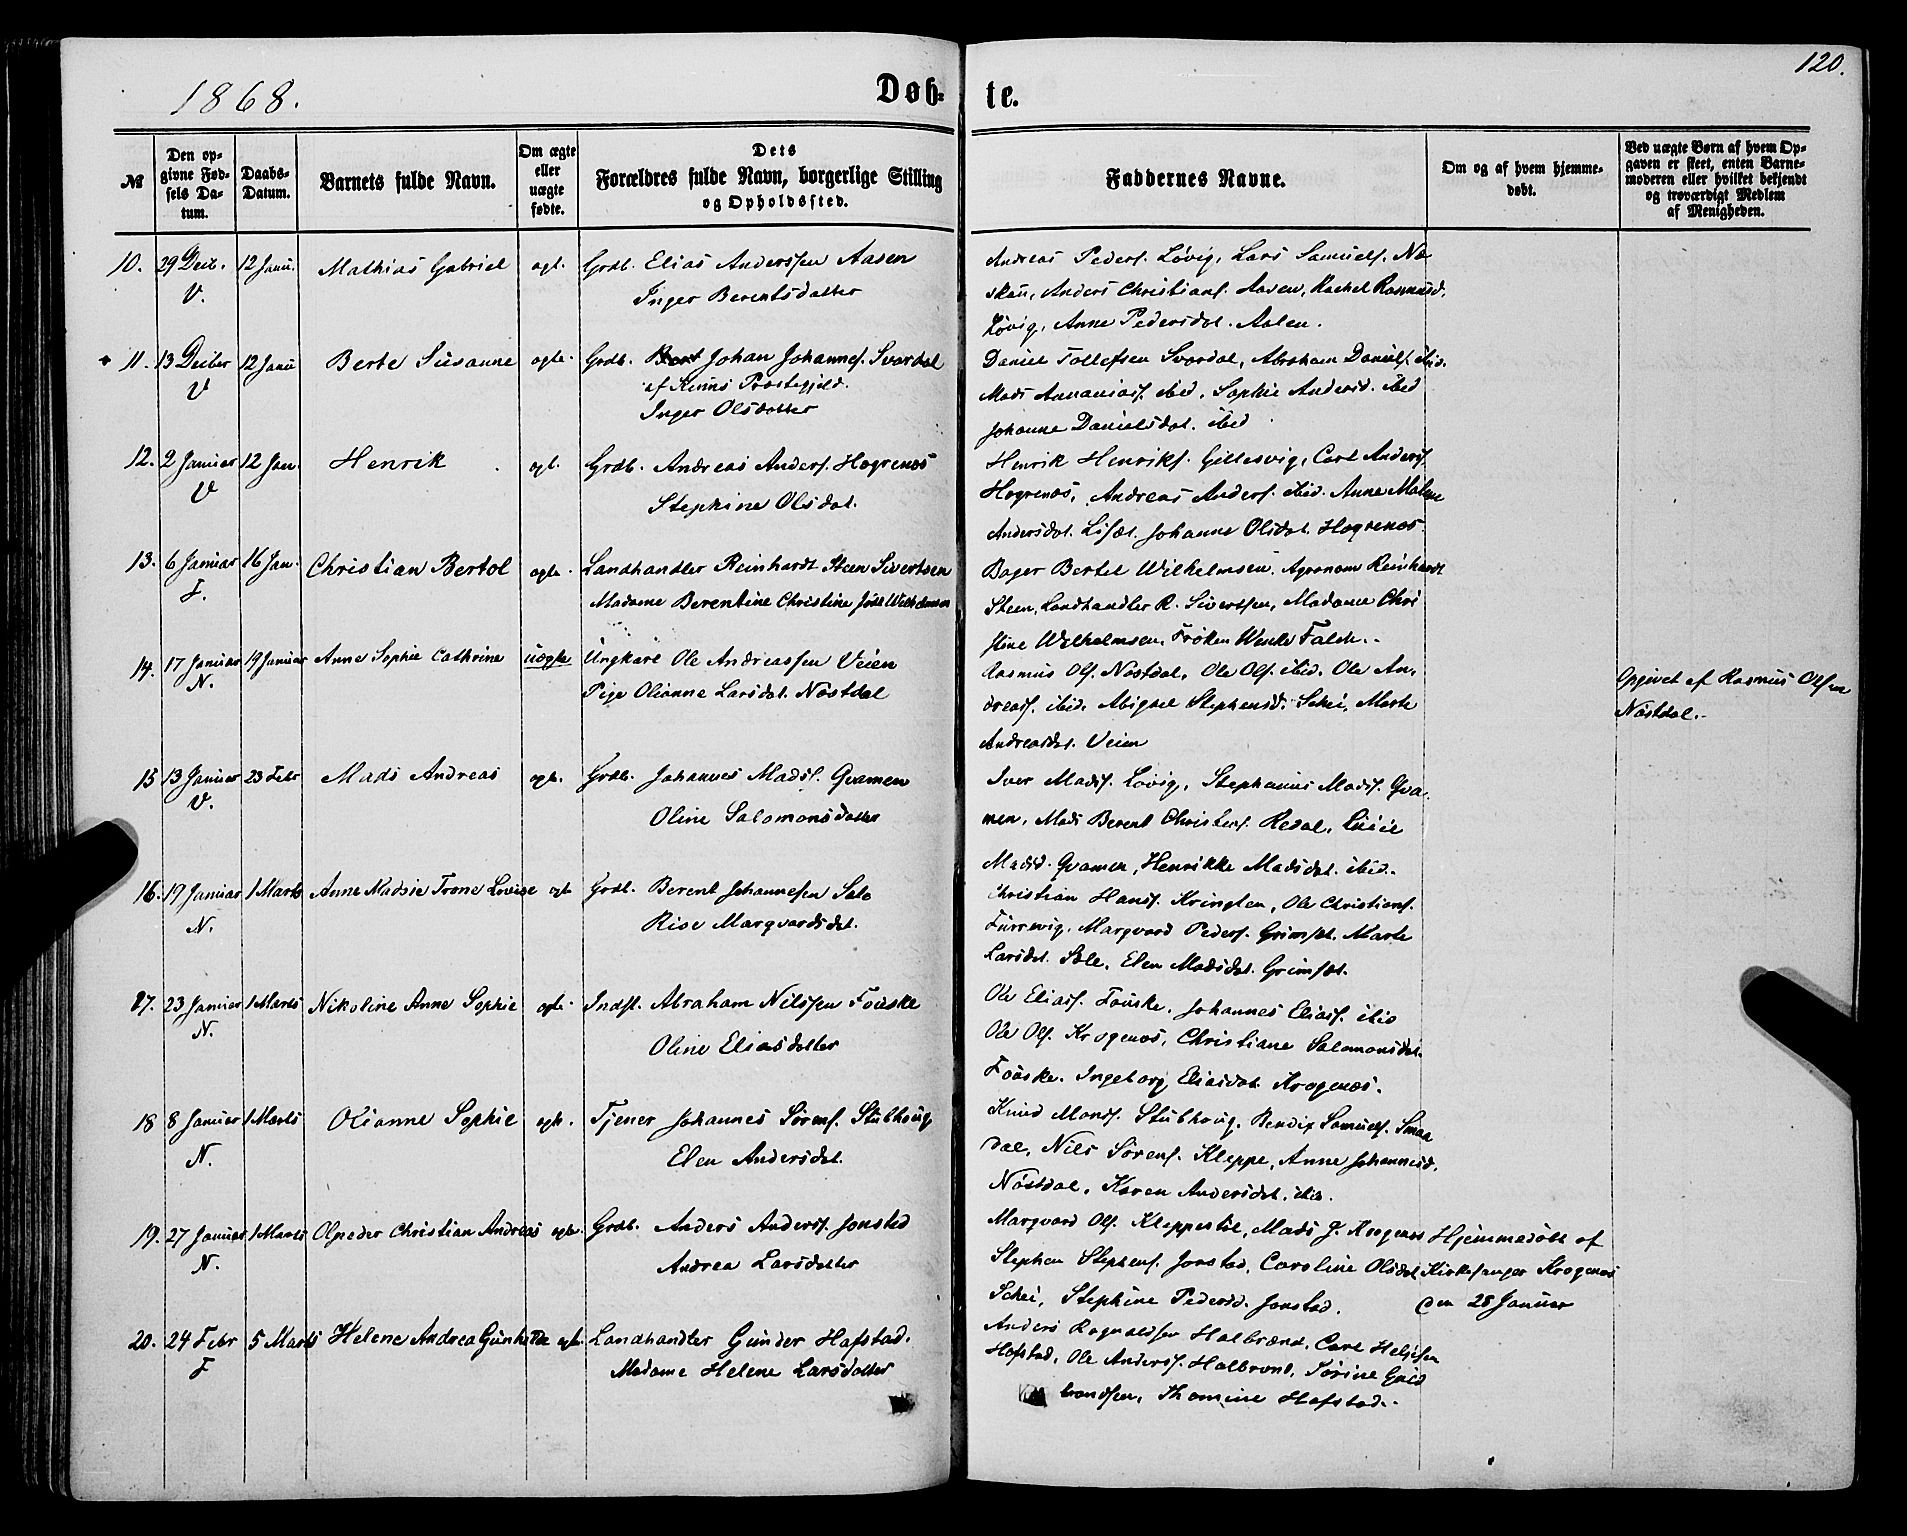 1868.
Døb-
te.
120.
№
Den op-
givne Fød-
sels Da-
tum.
Daabs-
Datum.
Barnets fulde Navn.
Om ægte
eller
uægte
fødte.
Dets
Forældres fulde Navn, borgerlige Stilling
og Opholdssted.
Faddernes Navne.
Om og af hvem hjemme-
døbt.
Ved uægte Børn af hvem Op-
gaven er skeet, enten Barne-
moderen eller hvilket bekjendt
og troværdigt Medlem
af Menigheden.
10. 29 Decb. 12 Janu. Mathias Gabriel ægt. Grdb. Elias Anderssen Aasen
V. Inger Berentsdatter
Andreas Peders. Løvig, Lars Samuels. Næ
skeu, Anders Christians. Aasen, Rachel Rasmusd.
Løvig, Anne Pedersdat. Aasen.
11. 13 Decber 12 Janu Berte Susanne ægte. Grdb. Johan Johannes. Svardal
V af Kinns Præstegjeld.
Inger Olsdatter
Daniel Tollefsen Svardal, Abraham Daniels. ibid.
Mads Annanias. ibid, Sophie Andersd. ibid
Johanne Danielsdat. ibid
12. 2 Januar 12 Jan. Henrik ægt. Grdb. Andreas Anders. Hogrenæs
V Stephine Olsdat.
Henrik Henriks. Gillesvig, Carl Anders.
Hogrenæs, Andreas Anders. ibid. Anne Malene
Andersdat. Lisæt. Johanne Olsdat. Hogrenæs
13. 6 Januar 16 Jan. Christian Bertol ægte. Landhandler Reinhardt Steen Sivertsen
F. Madame Berentine Christine født Wilhelmsen
Bager Bertel Wilhelmsen, Agronom Reinhardt
Steen, Landhandler R. Siverssen, Madame Chri
stine Wilhelmsen, Frøken Wenke Falch.
14. 17 Januar 19 Januar Anne Sophie Cathrine uægte Ungkarl Ole Andreassen Veien
N. Pige Olianne Larsdat. Nöstdal
Rasmus Ols. Nöstdal, Ole Ols. ibid. Ole An-
dreas. ibid. Abigael Stephensd. Schei, Marte
Andreasdat. Veien
Opgivet af Rasmus Olsen
Nöstdal.
15 13 Januar 23 Febr Mads Andreas ægt. Grdb. Johannes Mads. Gvamen
V. Oline Salomonsdatter
Iver Mads. Løvig, Stephanus Mads. Gva-
men, Mads Berent Christens. Redal, Lucie
Madsd. Gvamen, Henrikke Madsdat. ibid.
16. 19 Januar 1 Marts Anne Madsie Trone Lovise ægte Grdb. Berent Johannesen Sæle
N. Rise Marqvardsdat.
Christian Hans. Kringlen, Ole Christians.
Furrevig, Marqvard Peders. Grimset. Marte
Larsdat. Sæle, Elen Madsdat. Grimset.
17. 23 Januar 1 Marts Nikoline Anne Sophie ægte Indst. Abraham Nilssen Fouske
N. Oline Eliasdatter
Ole Elias. Fouske, Johannes Elias. ibid
Ole Ols. Krogenæs, Christiane Salomonsdat.
Fouske. Ingeborg Eliasdat. Krogenæs.
18 8 Januar 1 Marts Olianne Sophie ægte. Tjener Johannes Sørens. Stubhoug
N. Elen Andersdat.
Knud Mons. Stubhoug, Bendix Samuels. Smaa
dal, Nils Sørens. Kleppe, Anne Johannesd.
Nöstdal, Karen Andersdat. ibid.
19. 27 Januar 1 Marts Olpeder Christian Andreas ægte. Grdb. Anders Anders. Jonstad
N. Andrea Larsdatter
Marqvard Ols. Kleppestöl, Mads J. Krogenæs
Stephen Stephens. Jonstad, Caroline Olsdat
Schei, Stephine Pedersd. Jonstad.
Hjemmedøbt af
Kirkesanger Krogenæs
den 28 Januar
20. 24 Febr 5 Marts Helene Andrea Gunhilde ægte. Landhandler Gunder Hafstad.
F Madame Helene Larsdatter
Anders Rognaldsen Halbrænd, Carl Helgesen
Hafstad, Ole Anders. Halbrend, Torine Guld
brandsen, Thomine Hafstad.